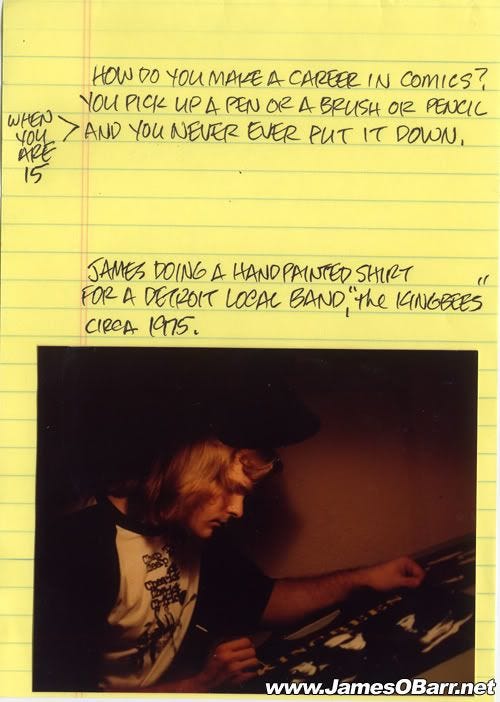 HOW DO YOU MAKE A CAREER IN COMICS?
YOU PICK UP A PEN OR A BRUSH OR PENCIL
AND YOU NEVER EVER PUT IT DOWN.
WHEN
YOU
ARE
15
JAMES DOING A HANDPAINTED SHIRT
FOR A DETROIT LOCAL BAND, "the KINGBEES"
CIRCA 1975.
www.JamesOBarr.net